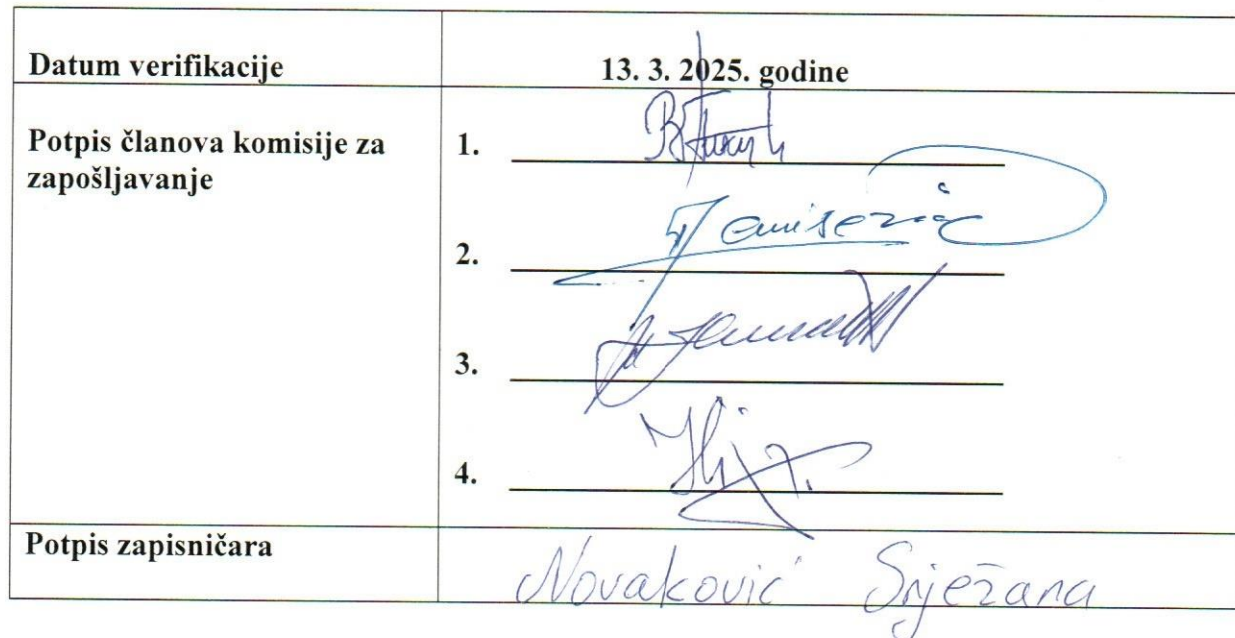 Datum verifikacije 13. 3. 2025. godine
Potpis članova komisije za
zapošljavanje
1.
2.
3.
4.
Potpis zapisničara Novaković Snježana